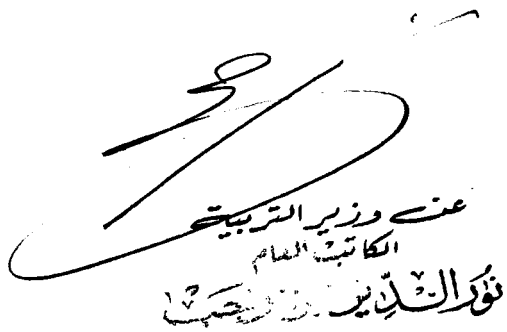 عن وزير التربية
الكاتب العام
نور الدين